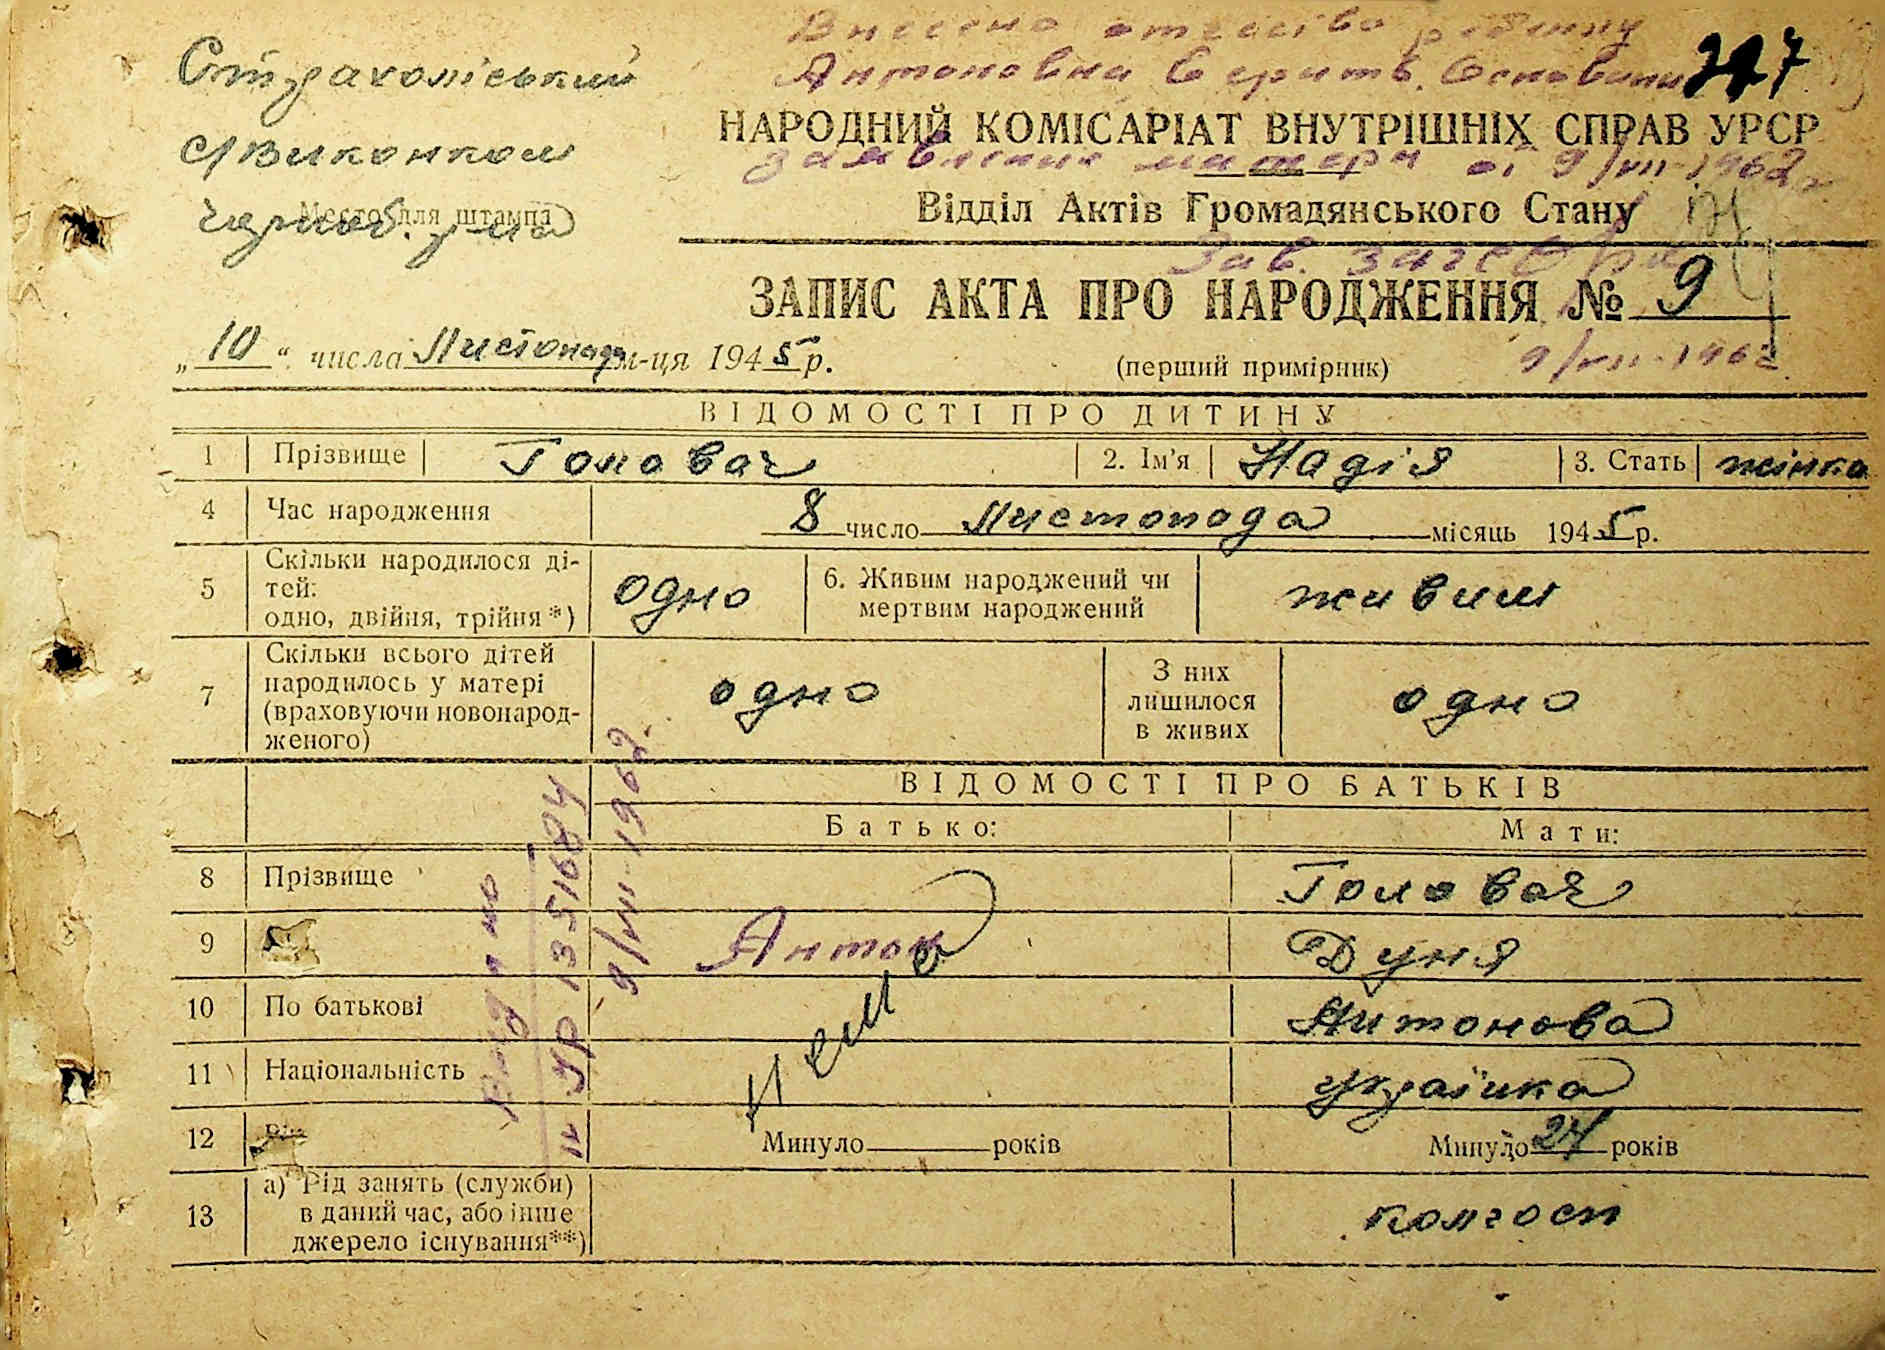 Внесено отчество
Антоновна
заявления матери от 9/VII-1962 г
Зав. загсбюро
9/VII-1962
Страхоліський
с/виконком
Чорноб. р-на
Место для штампа
327
НАРОДНИЙ КОМІСАРІАТ ВНУТРІШНІХ СПРАВ УРСР
Відділ Актів Громадянського Стану
ЗАПИС АКТА ПРО НАРОДЖЕННЯ № 9
„10“ числа Листопада м-ця 1945 р.
(перший примірник)
ВІДОМОСТІ ПРО ДИТИНУ
1 Прізвище Головач 2. Ім'я Надія 3. Стать жінка
4 Час народження 8 число Листопада місяць 1945 р.
5 Скільки народилося ді-
тей:
одно, двійня, трійня*) одно 6. Живим народжений чи
мертвим народжений живим
7 Скільки всього дітей
народилось у матері
(враховуючи новонарод-
женого) одно З них
лишилося
в живих одно
ВІДОМОСТІ ПРО БАТЬКІВ
Батько: Мати:
8 Прізвище Головач
9 Антон Дуня
10 По батькові Антонова
11 Національність українка
нема
12 Минуло ____ років Минуло 24 років
13 а) Рід занять (служби)
в даний час, або інше
джерело існування**) колгосп
УР 1351684
9/VII-1962